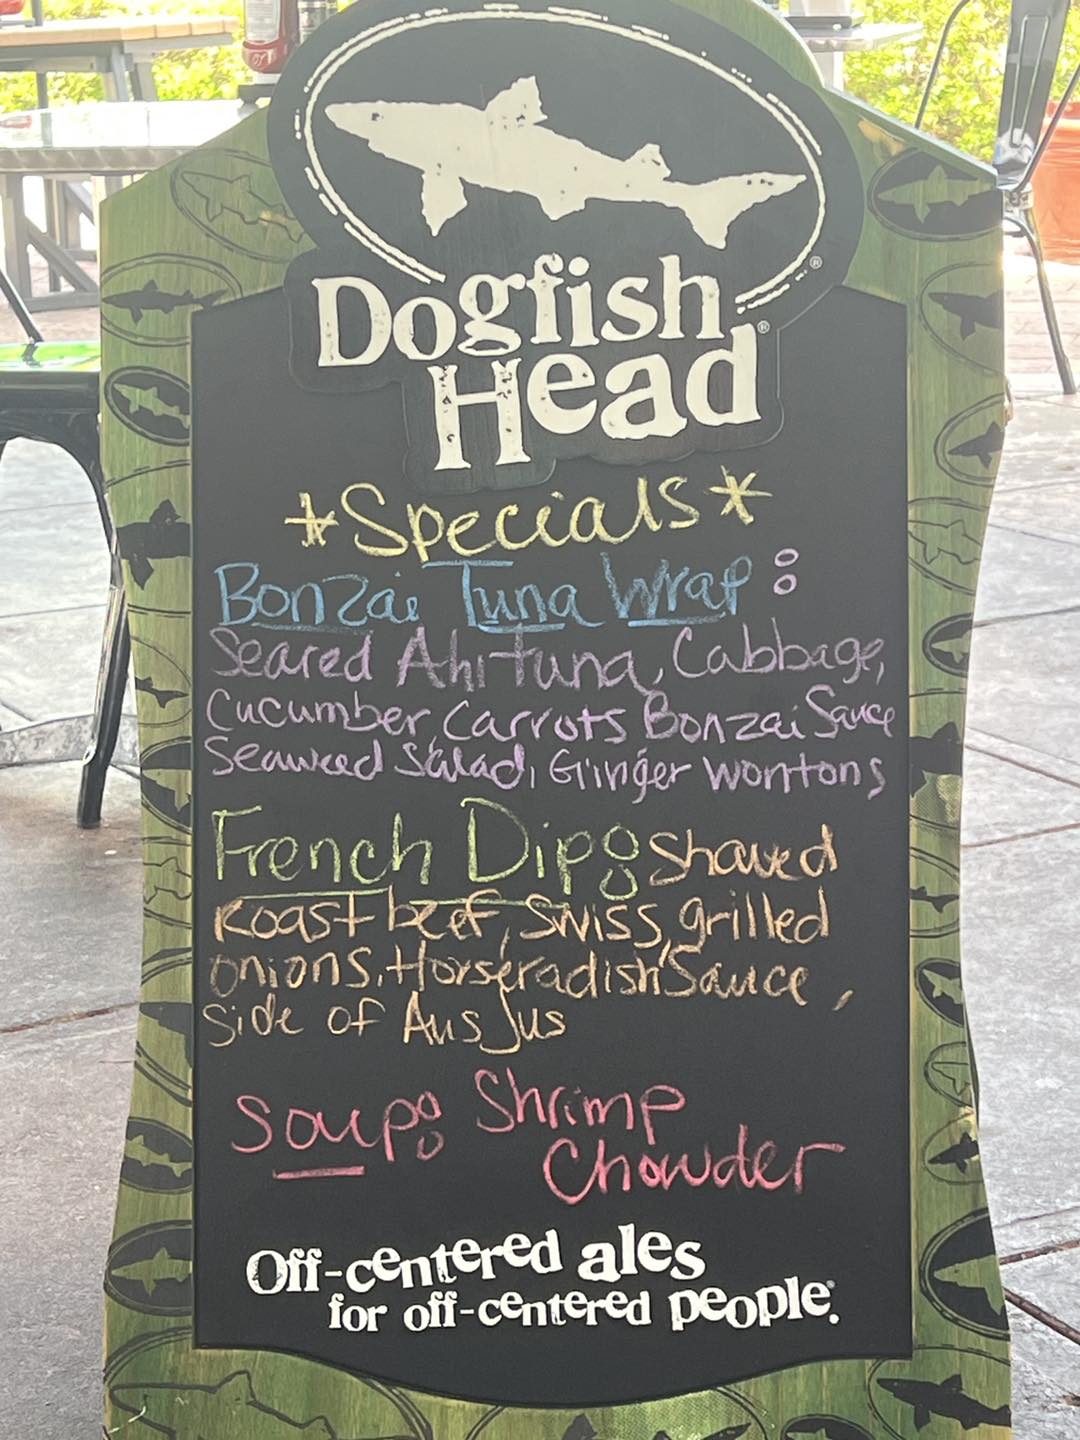 Dogfish
Head
*Specials*
Bonzai Tuna Wrap:
Seared Ahi tuna, Cabbage,
Cucumber, Carrots Bonzai Sauce
Seaweed Salad, Ginger wontons
French Dip: Shaved
Roast beef, Swiss, grilled
onions, Horseradish Sauce,
Side of Aus Jus
Soup: Shrimp
Chowder
Off-centered ales
for off-centered people.